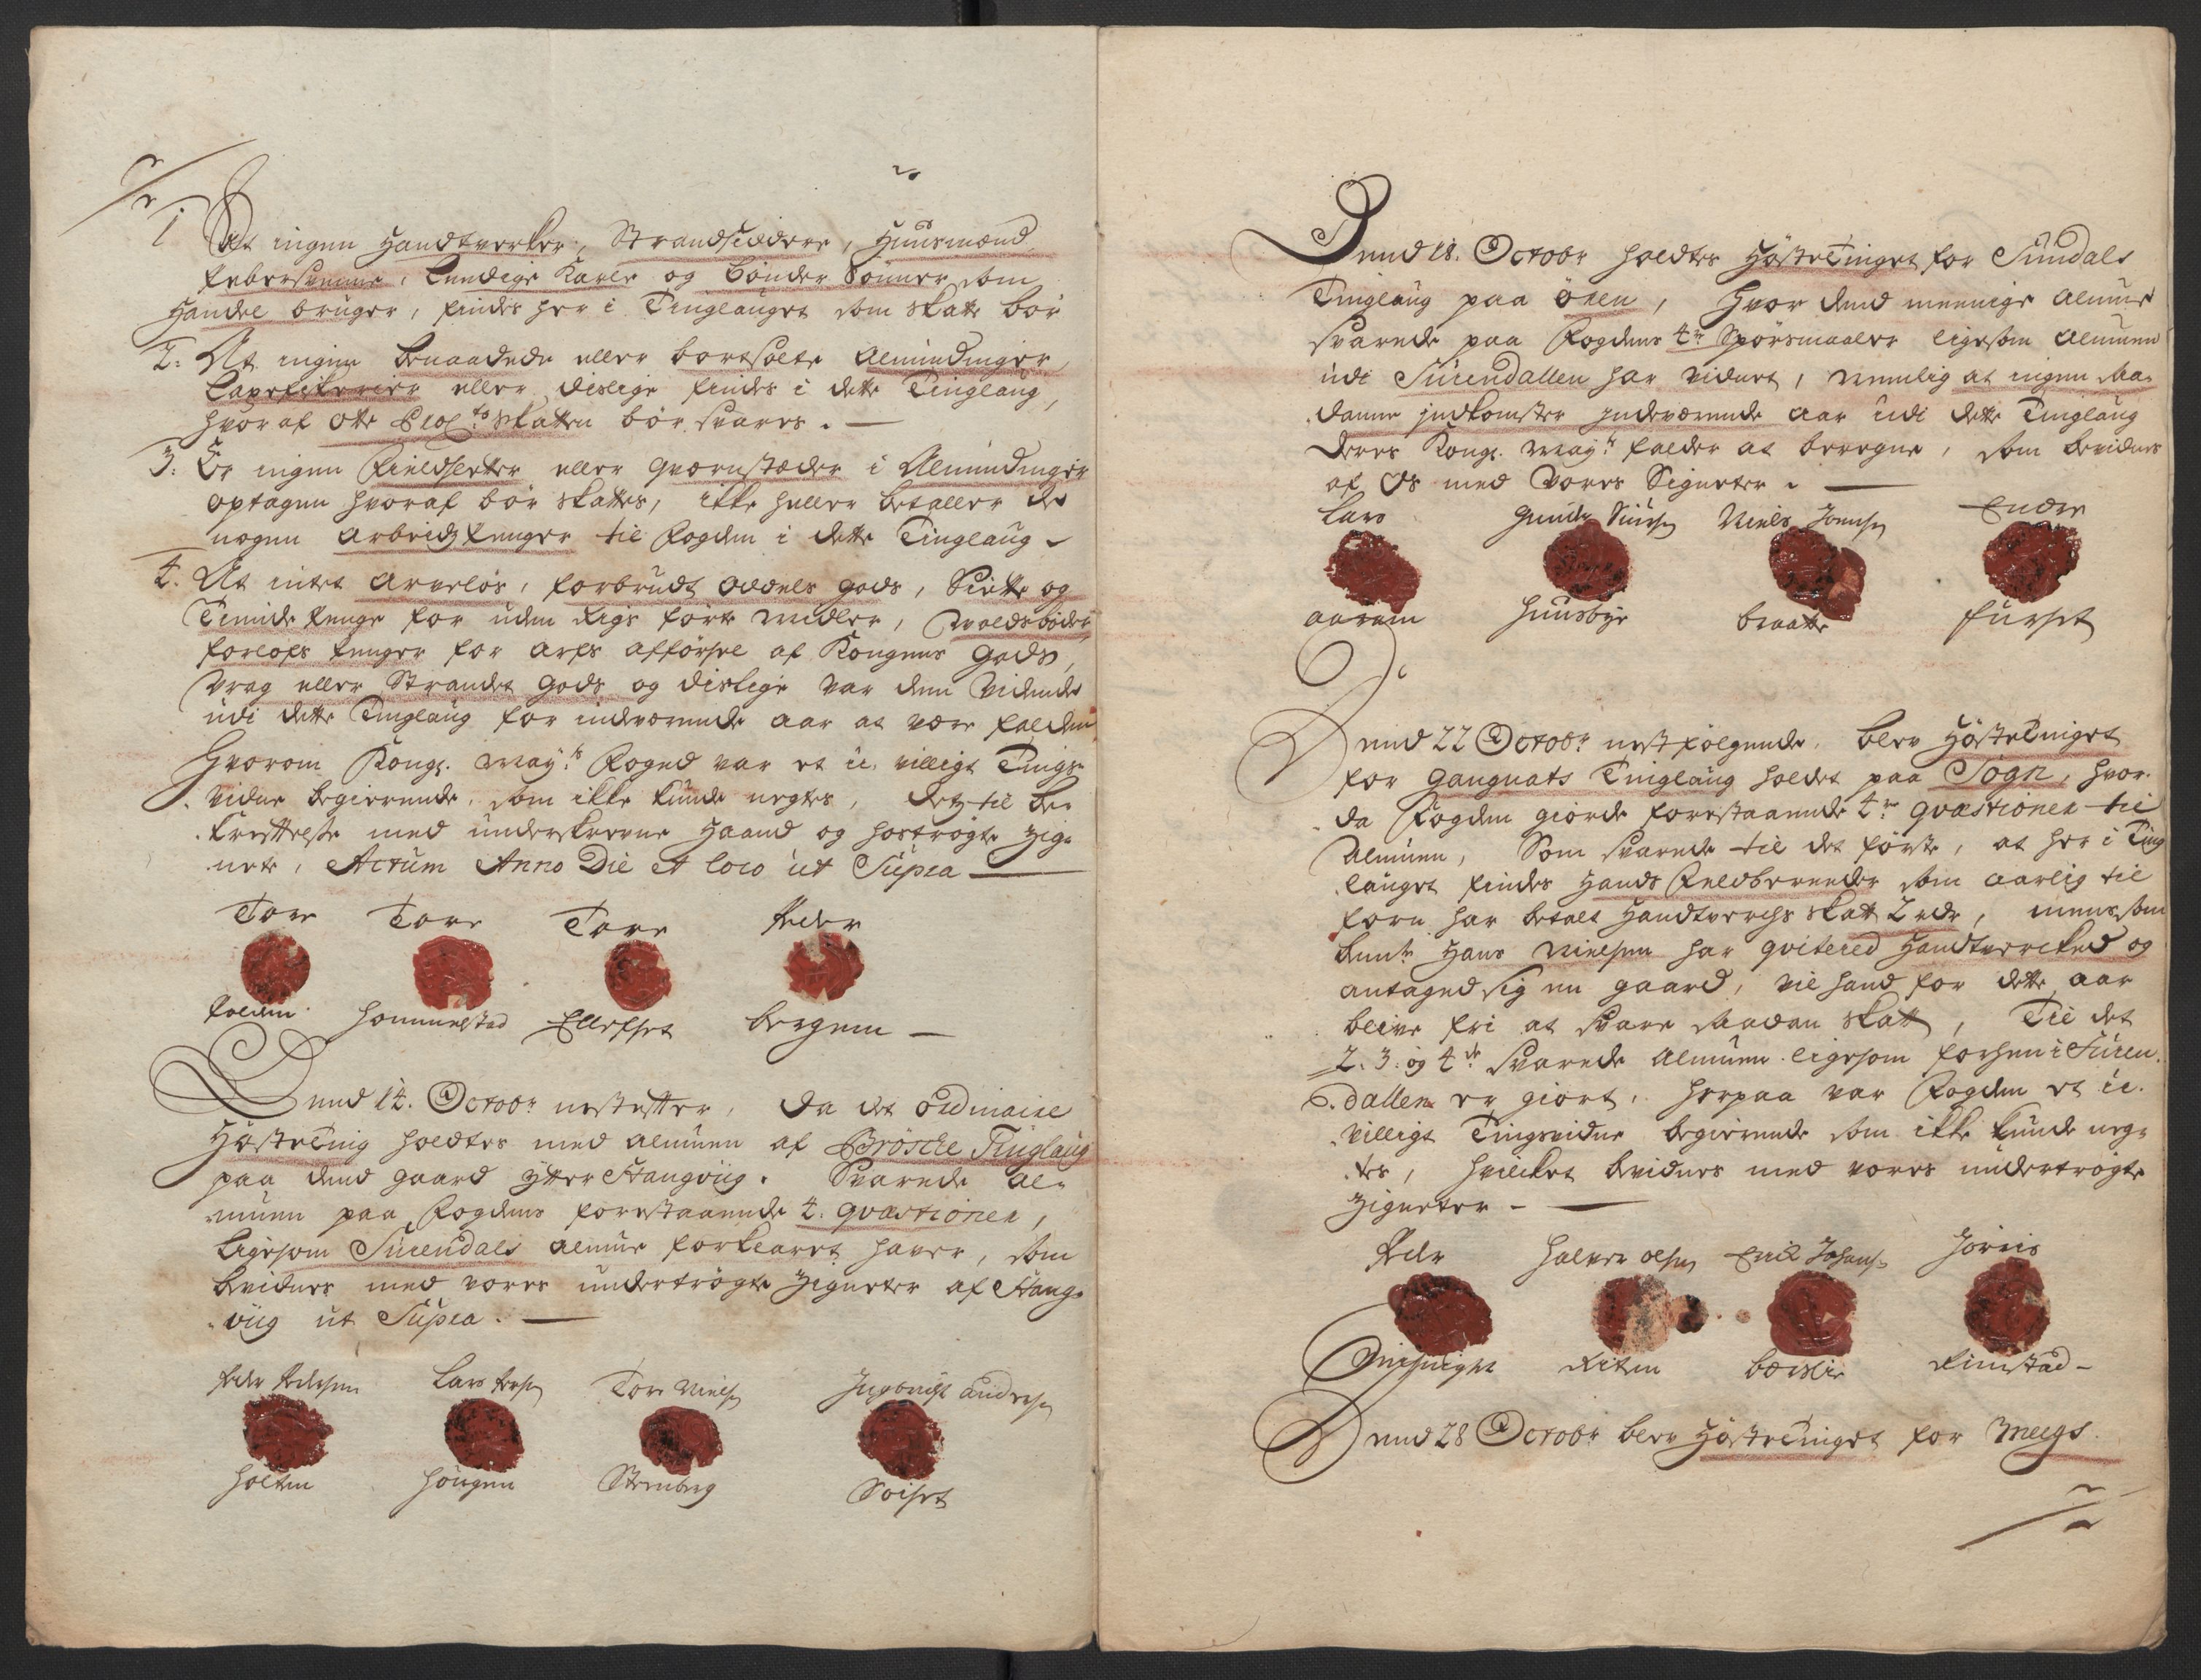 1 At ingen Handtverker, Strandsiddere, Huusmænd
Lændige Karle og Bønder Sønner som
Handel bruger, findes her i Tinglauget som skatte bør
2: At ingen benaadede eller bortsolte Almindinger,
Laxefiskerier eller deslige findes i dette Tinglaug,
hvoraf Otte Proc:to skatten bør svares. —
3: Er ingen Fieldsetter eller Qvernstæder i Almindinger
optagen hvoraf bør skattes, ikke heller betaller de
nogen Arbeidz penger til Fogden i dette Tinglaug ~
4. At intet Arveløs, forbrudt Oddels gods, Siette og
Tiende penge for uden Rigs førte Midler, Woldsbøder
forlofs penger for Arfs afførsel af Kongens Gods,
Vrag eller Strandet gods og deslige var dem vidende
udi dette Tinglaug for indeværende aar at være falden
Hvorom Kongl. May:ts Foged var et u-villigt Tings-
vidne begierende, som ikke kunde negtes, dets til be-
kreftelse med underskrevne Haand og hostrøgte Zig-
nete, Actum Anno Die et loco ut Supra —
Tore Tore Tore Peder
Folden Hommelstad Ellefset Bergem —
Dend 14. Octobr nestefter, da det ordinaire
Høsteting holdtes med Almuen af Brøske Tinglaug
paa dend gaard Ytter Stangviig. Svarede Al-
muen paa Fogdens forestaaende 4. qvæstioner,
ligesom Surendals Almue forklaret haver, som
bevidnes med vores undertrøgte Zigneter af Stang-
viig ut Supra. —
Peder Pedersen Lars Tore Nielsen Ingebrigt Andersen
Holten Høugen Stenberg Soiset
Dend 18. Octobr holdtes Høstetinget for Sundals
Tinglaug paa Øren, hvor dend meenige Almue
svarede paa Fogdens 4re Spørsmaaler ligesom Almuen
udi Surendallen har vidnet, nemlig at ingen saa-
danne indkomster indeværende aar udi dette Tinglaug
deres Kongl. May:t falder at beregne, som bevidnes
af Os med Vores Signeter. —
Lars Gunder Siursen Niels Joensen Endre
Huusbye Braatte Furset
Dend 22 Octobr nestfølgende, blev Høstetinget
for Gangnats Tinglaug holdet paa Sogn, hvor-
da Fogden giorde forestaaende 4re qvæstioner til
Almuen, Som svarede til det første, at her i Ting
lauget findes Hands Feldberreder som aarlig til
forn har betalt Handtverchs skatt 2 rdr, mens som
bem:te Hans Nielsen har qvitered Handtverched og
antaged sig en gaard, vil hand for dette aar
blive fri at svare saadan skatt, Til det
2. 3. og 4de svarede Almuen ligesom forhen i Suren-
dallen er giort, herpaa var Fogden et u-
villigt Tingsvidne begierende som ikke kunde neg-
tes, hvilcket bevidnes med vores undertrøgte
Zigneter — —
Peder Halvor Olsen Erick Johans: Jørris
Riten Bærslie Rimstad —
Dend 28 Octobr blev Høstetinget for Meegs